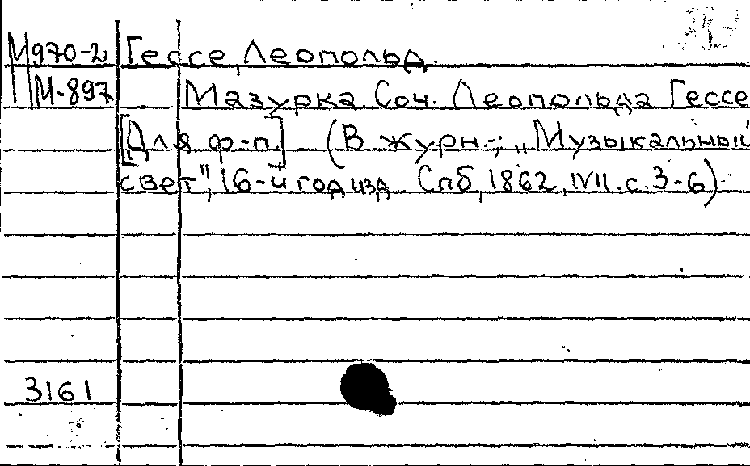 М970-2 Гессе, Леопольд.
М-897 Мазурка Соч. Леопольда Гессе
[Для ф-п.] (В журн.: „Музыкальный
свет", 16-й год изд. Спб, 1862, №VII. с. 3-6)
3161